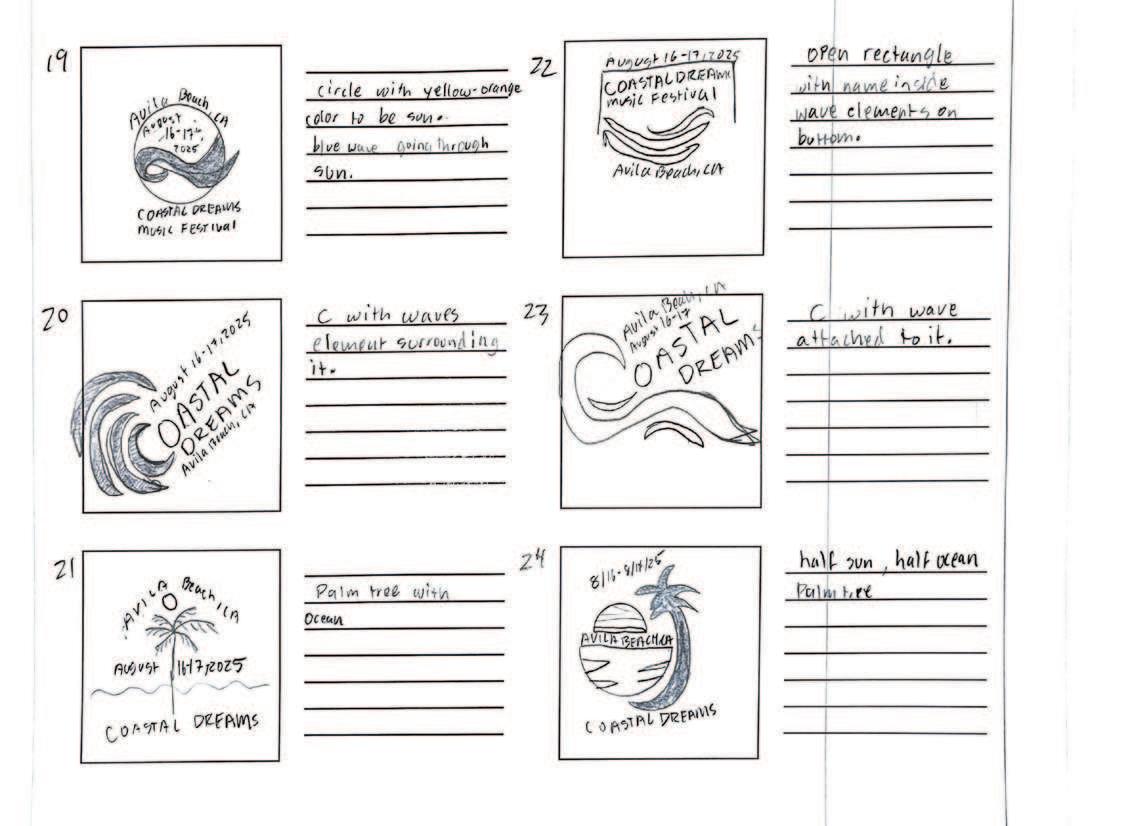 19
Avila Beach, CA
August
16-17,
2025
COASTAL DREAMS
MUSIC FESTIVAL
circle with yellow-orange
color to be sun.
blue wave going through
sun.
22
August 16-17, 2025
COASTAL DREAMS
Music Festival
Avila Beach, CA
open rectangle
with name inside
wave elements on
bottom.
20
August 16-17, 2025
COASTAL
DREAMS
Avila Beach, CA
C with waves
element surrounding
it.
23
Avila Beach, CA
August 16-17
COASTAL
DREAMS
C with wave
attached to it.
21
AVILA Beach, CA
AUGUST 16-17, 2025
COASTAL DREAMS
Palm tree with
ocean
24
8/16-8/17/25
AVILA BEACH, CA
COASTAL DREAMS
half sun, half ocean
Palm tree